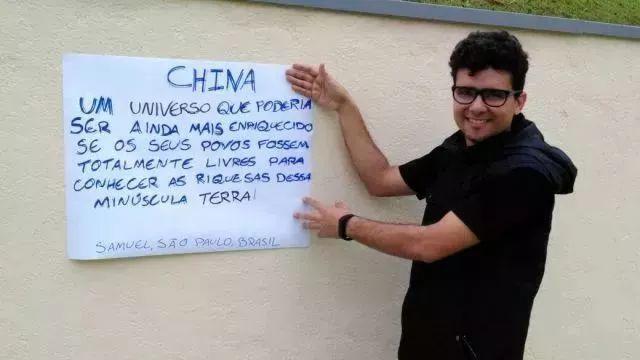 CHINA
UM UNIVERSO QUE PODERIA
SER AINDA MAIS ENRIQUECIDO
SE OS SEUS POVOS FOSSEM
TOTALMENTE LIVRES PARA
CONHECER AS RIQUESAS DESSA
MINÚSCULA TERRA!
SAMUEL, SÃO PAULO, BRASIL